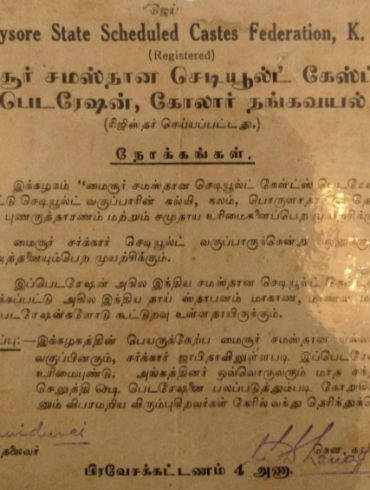 ஜெய்
ysore State Scheduled Castes Federation, K.
(Registered)
சூர் சமஸ்தான செடியூல்ட் கேஸ்
பெடரேஷன், கோலார் தங்கவயல்
(ரிஜிஸ்தர் செய்யப்பட்டது.)
நோக்கங்கள்.
இக்கழகம் "மைசூர் சமஸ்தான செடியூல்ட் கேஸ்ட்ஸ் பெடரே
ட்டு செடியூல்ட் வகுப்பாரின் கல்வி, கலம், பொருளாதார
புணருத்தாரணம் மற்றும் சமுதாய உரிமைகளைப்பெற
மைசூர் சர்க்கார் செடியூல்ட் வகுப்பாருக்கென்று
த்தனையும்பெற முயற்சிக்கும்.
இப்பெடரேஷன் அகில இந்திய சமஸ்தான செடியூல்ட்
க்கப்பட்டு அகில இந்திய தாய் ஸ்தாபனம் மாகாண,
டரேஷன்களோடு கூட்டுறவு உள்ளதாயிருக்கும்.
ப்பு:—இக்கழகத்தின் பெயருக்கேற்ப மைசூர் சமஸ்தான
வகுப்பினரும், சர்க்கார் ஜாபிதாவிலுள்ளபடி இப்பெடரே
உரிமையுண்டு. அங்கத்தினர் ஒவ்வொருவரும் மாத சந்
செலுத்தி ஷெ பெடரேஷனை பலப்படுத்தும்படி
னும் விபரமறிய விரும்புகிறவர்கள் நேரில்வந்து
தலைவர்
பிரவேசக்கட்டணம் 4 அணா.